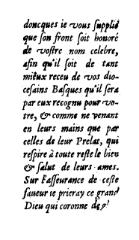 doncques ie vous ſupplie
que ſon front ſoit honoré
de voſtre nom celebre,
afin qu'il ſoit de tant
mieux receu de vos dio-
ceſains Baſques qu'il ſera
par eux recognu pour vo-
tre, & comme ne venant
en leurs mains que par
celles de leur Prelat, qui
reſpire à toute reſte le bien
& ſalut de leurs ames.
Sur l'aſſeurance de ceſte
faueur ie prieray ce grand
Dieu qui coronne de